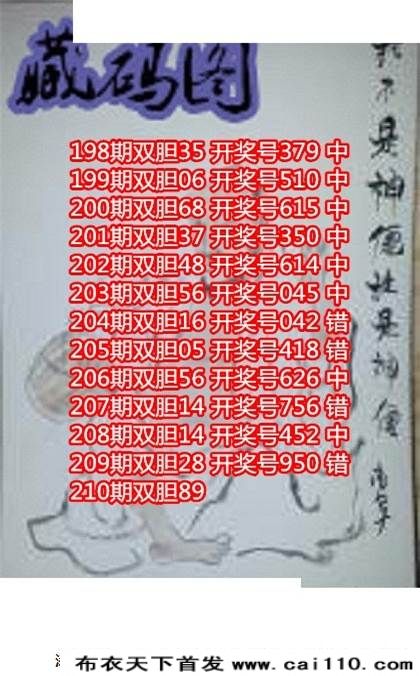 藏码图
198期双胆35 开奖号379 中
199期双胆06 开奖号510 中
200期双胆68 开奖号615 中
201期双胆37 开奖号350 中
202期双胆48 开奖号614 中
203期双胆56 开奖号045 中
204期双胆16 开奖号042 错
205期双胆05 开奖号418 错
206期双胆56 开奖号626 中
207期双胆14 开奖号756 错
208期双胆14 开奖号452 中
209期双胆28 开奖号950 错
210期双胆89
不是神仙 是神仙
布衣天下首发 www.cai110.com